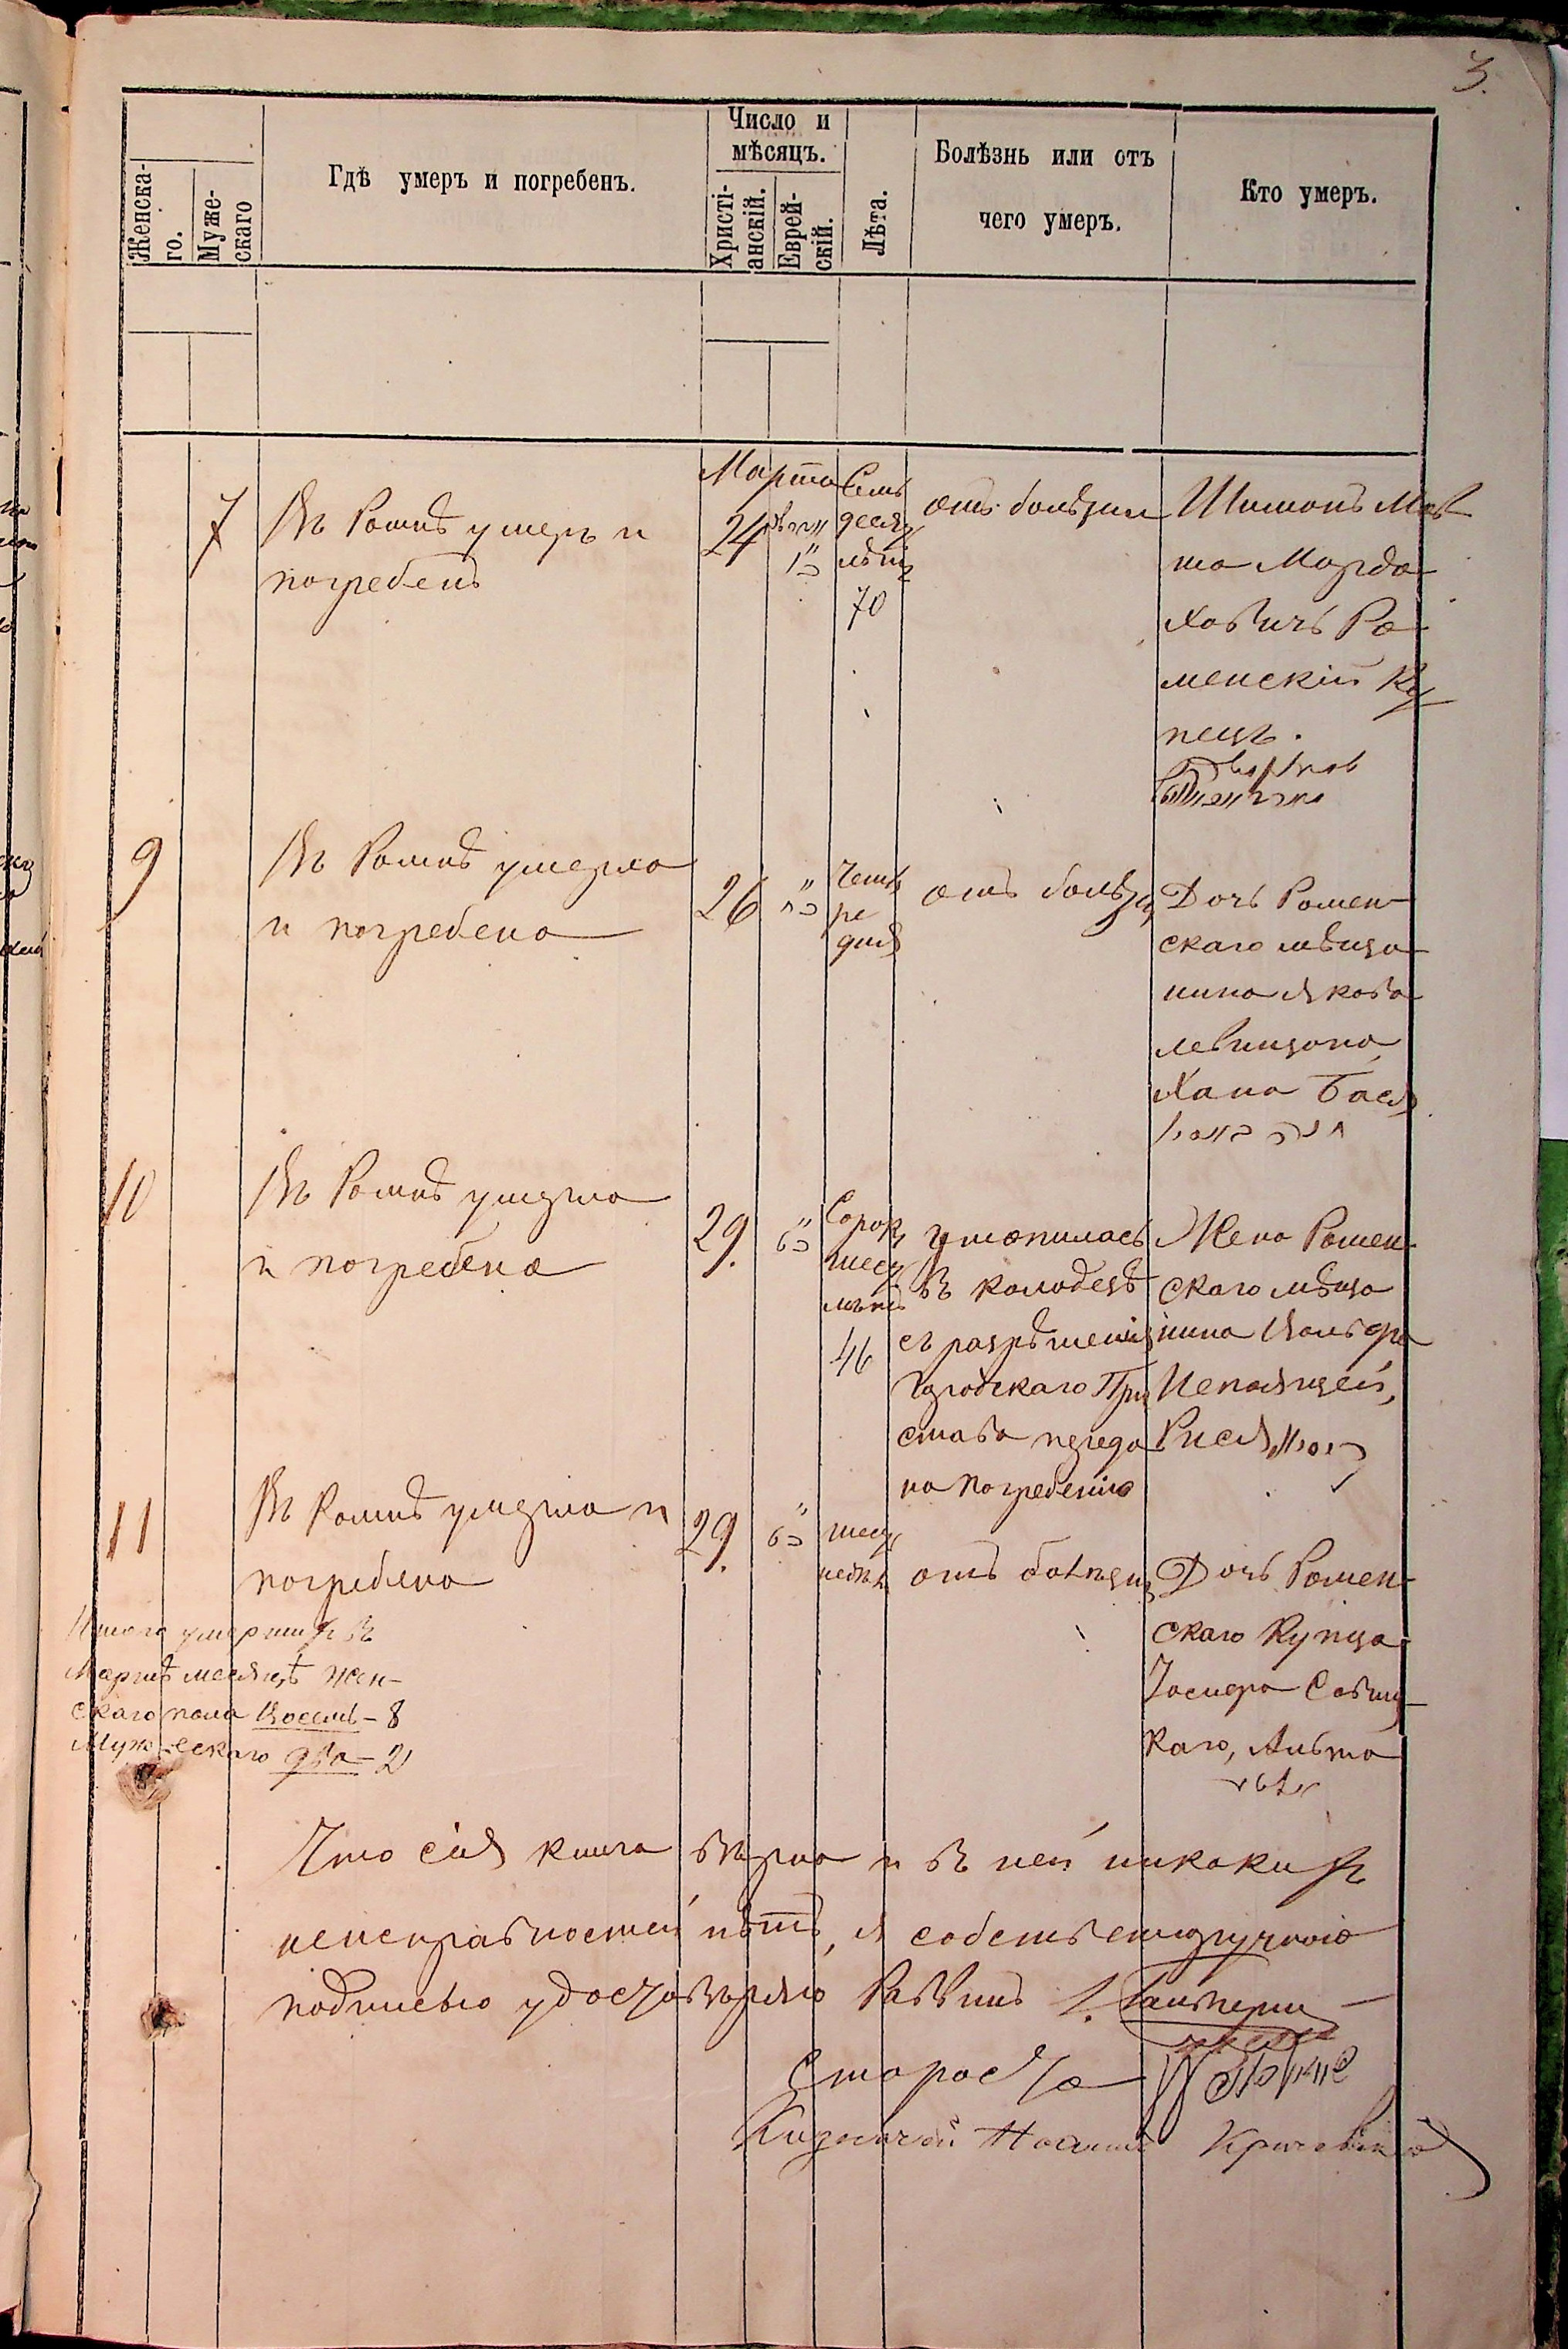 3.
Число и
мѣсяцъ.
Женска-
го.
Муже-
скаго
Гдѣ умеръ и погребенъ.
Христі-
анскій.
Еврей-
скій.
Лѣта.
Болѣзнь или отъ
чего умеръ.
Кто умеръ.
Марта
7
Въ Ромнѣ умеръ и
погребенъ
24
Семь
десят
лѣтъ
70
отъ болѣзни
Шимонъ
Мордо
ховичъ Ро
менскій Ку
пецъ.
9
Въ Ромнѣ умерла
и погребена
26
Четы
ре
дня
отъ болѣзн
Дочь Ромен
скаго мѣща
нина Якова
Левищона
Хана Бася
חנה באסי
10
Въ Ромнѣ умерла
и погребена
29.
Сорок
шест
лѣтъ
46
утопилась
въ колодезѣ
съ разрѣшенія
Городскаго При
става переда
на погребенію
Жена Ромен
скаго мѣща
нина Вольфа
Рися
11
Въ Ромнѣ умерла и
погребена
29.
шест
недѣл
отъ болѣзни
Дочь Ромен
скаго Купца
Іосифа
каго,
Итого умершихъ въ
Мартѣ месяцѣ жен-
скаго пола Восемь – 8
Мужескаго два – 2
Что сія книга вѣрна и въ ней никакихъ
неисправностей нѣтъ, я собственноручною
подписью удостовѣряю Раввинъ
Староста